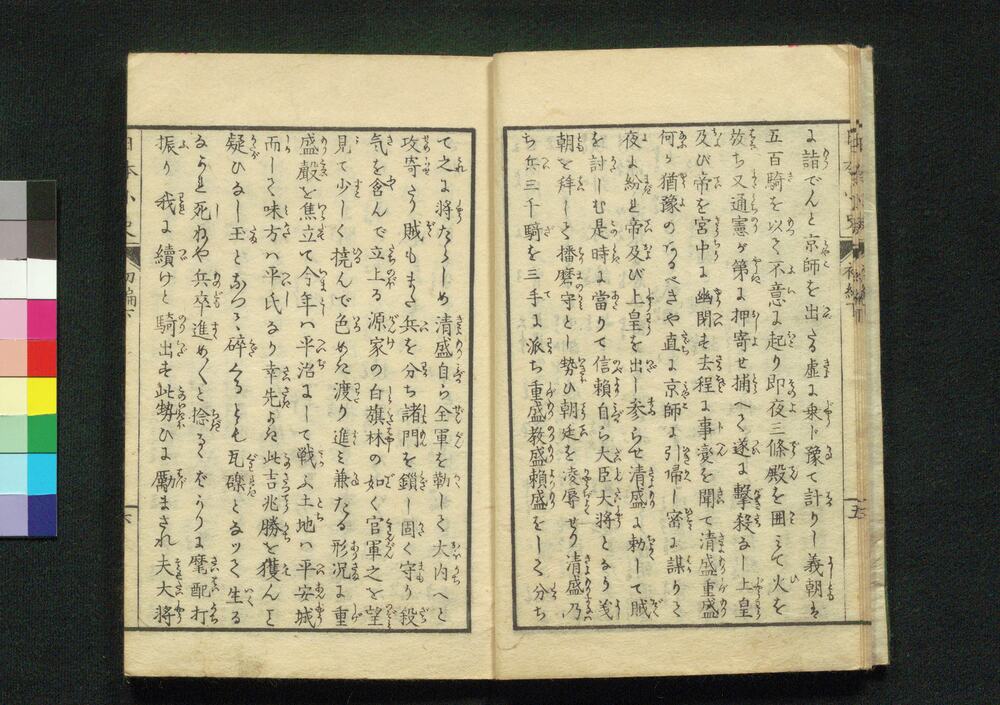 に詣でんと京師を出たる虚に乗じ豫て計りし義朝は
五百騎を以て不意に起り即夜三條殿を囲みて火を
放ち又通憲が第に押寄せ捕へて遂に撃殺なし上皇
及び帝を宮中に幽閉す去程に事変を聞て清盛重盛
何ぞ猶豫のなるべきや直に京師に引帰し密に謀りて
夜に紛れ帝及び上皇を出し参らせ清盛に勅して賊
を討しむ是時に当りて信頼自ら大臣大将となり義
朝を拜して播磨守とし勢ひ朝廷を凌辱せり清盛乃
ち兵三千騎を三手に派ち重盛教盛頼盛をして分ち
て之に将たらしめ清盛自ら全軍を勒して大内へと
攻寄たり賊もまた兵を分ち諸門を鎖し固く守り殺
気を含んで立上る源家の白旗林の如く官軍之を望
見て少しく撓んで色めき渡り進み兼たる形况に重
盛聲を焦立て今年ハ平治にして戦ふ土地ハ平安城
而して味方ハ平氏なり幸先よき此吉兆勝を獲んこと
疑ひなし玉となつて碎くるとも瓦礫となツて生る
なよれ死ねや兵卒進め〱と捻るばかりに麾配打
振り我に續けと騎出す此勢ひに励まされ夫大将
日本小史
初編下
五
六